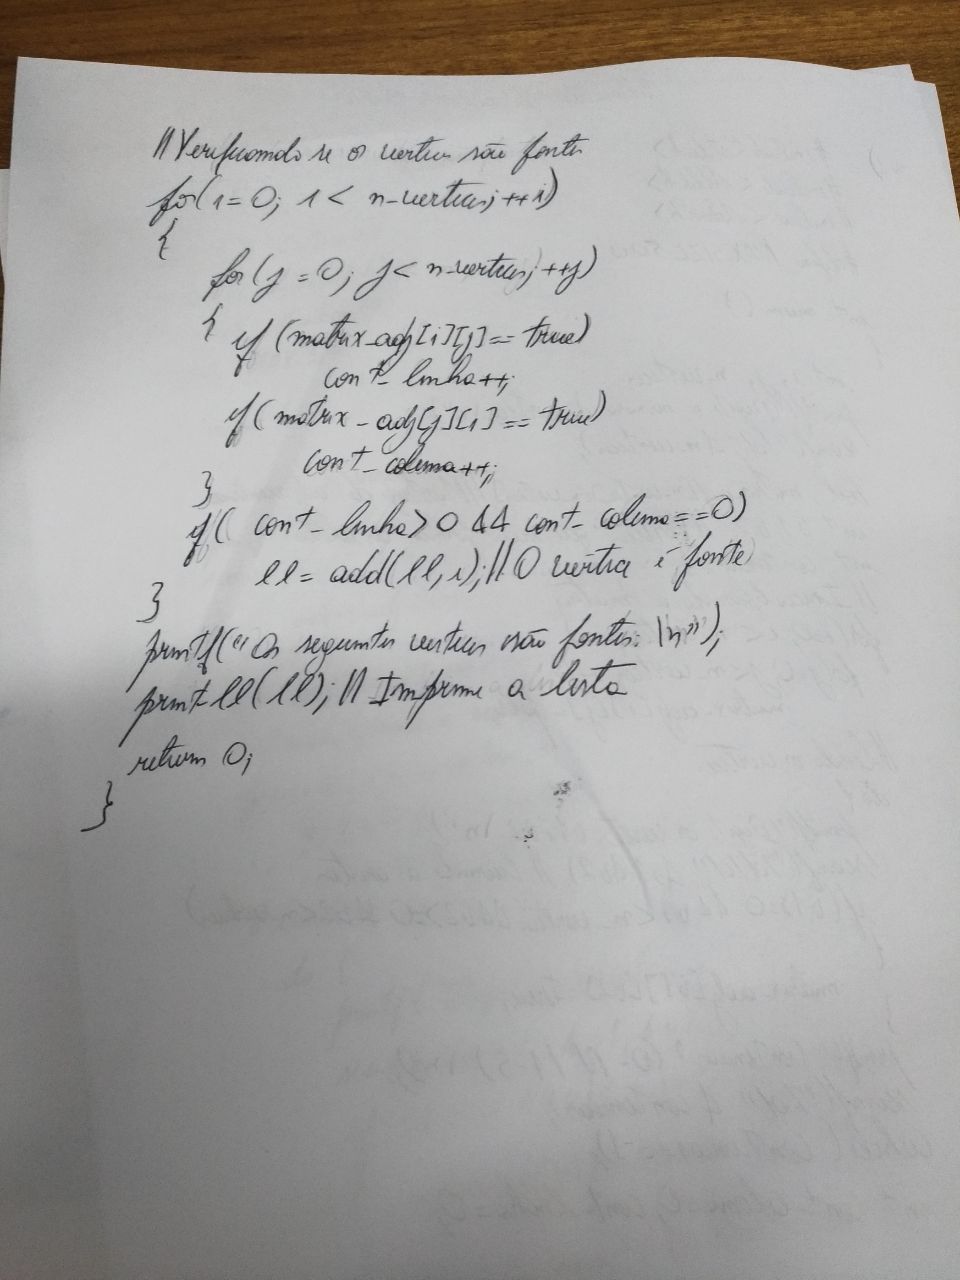 //Verificando se os vertices são fontes
for(i=0; i< n_vertices; ++i)
{
for(j=0; j< n_vertices; ++j)
{ if (matrix_adj[i][j]== true)
cont_linha++;
if(matrix_adj[j][i]== true)
cont_coluna++;
}
if( cont_linha>0 && cont_coluna==0)
ll= add(ll,i);//O vertice é fonte
}
printf("Os seguintes vertices são fontes: \n");
print_ll(ll);//Imprime a lista
return 0;
}